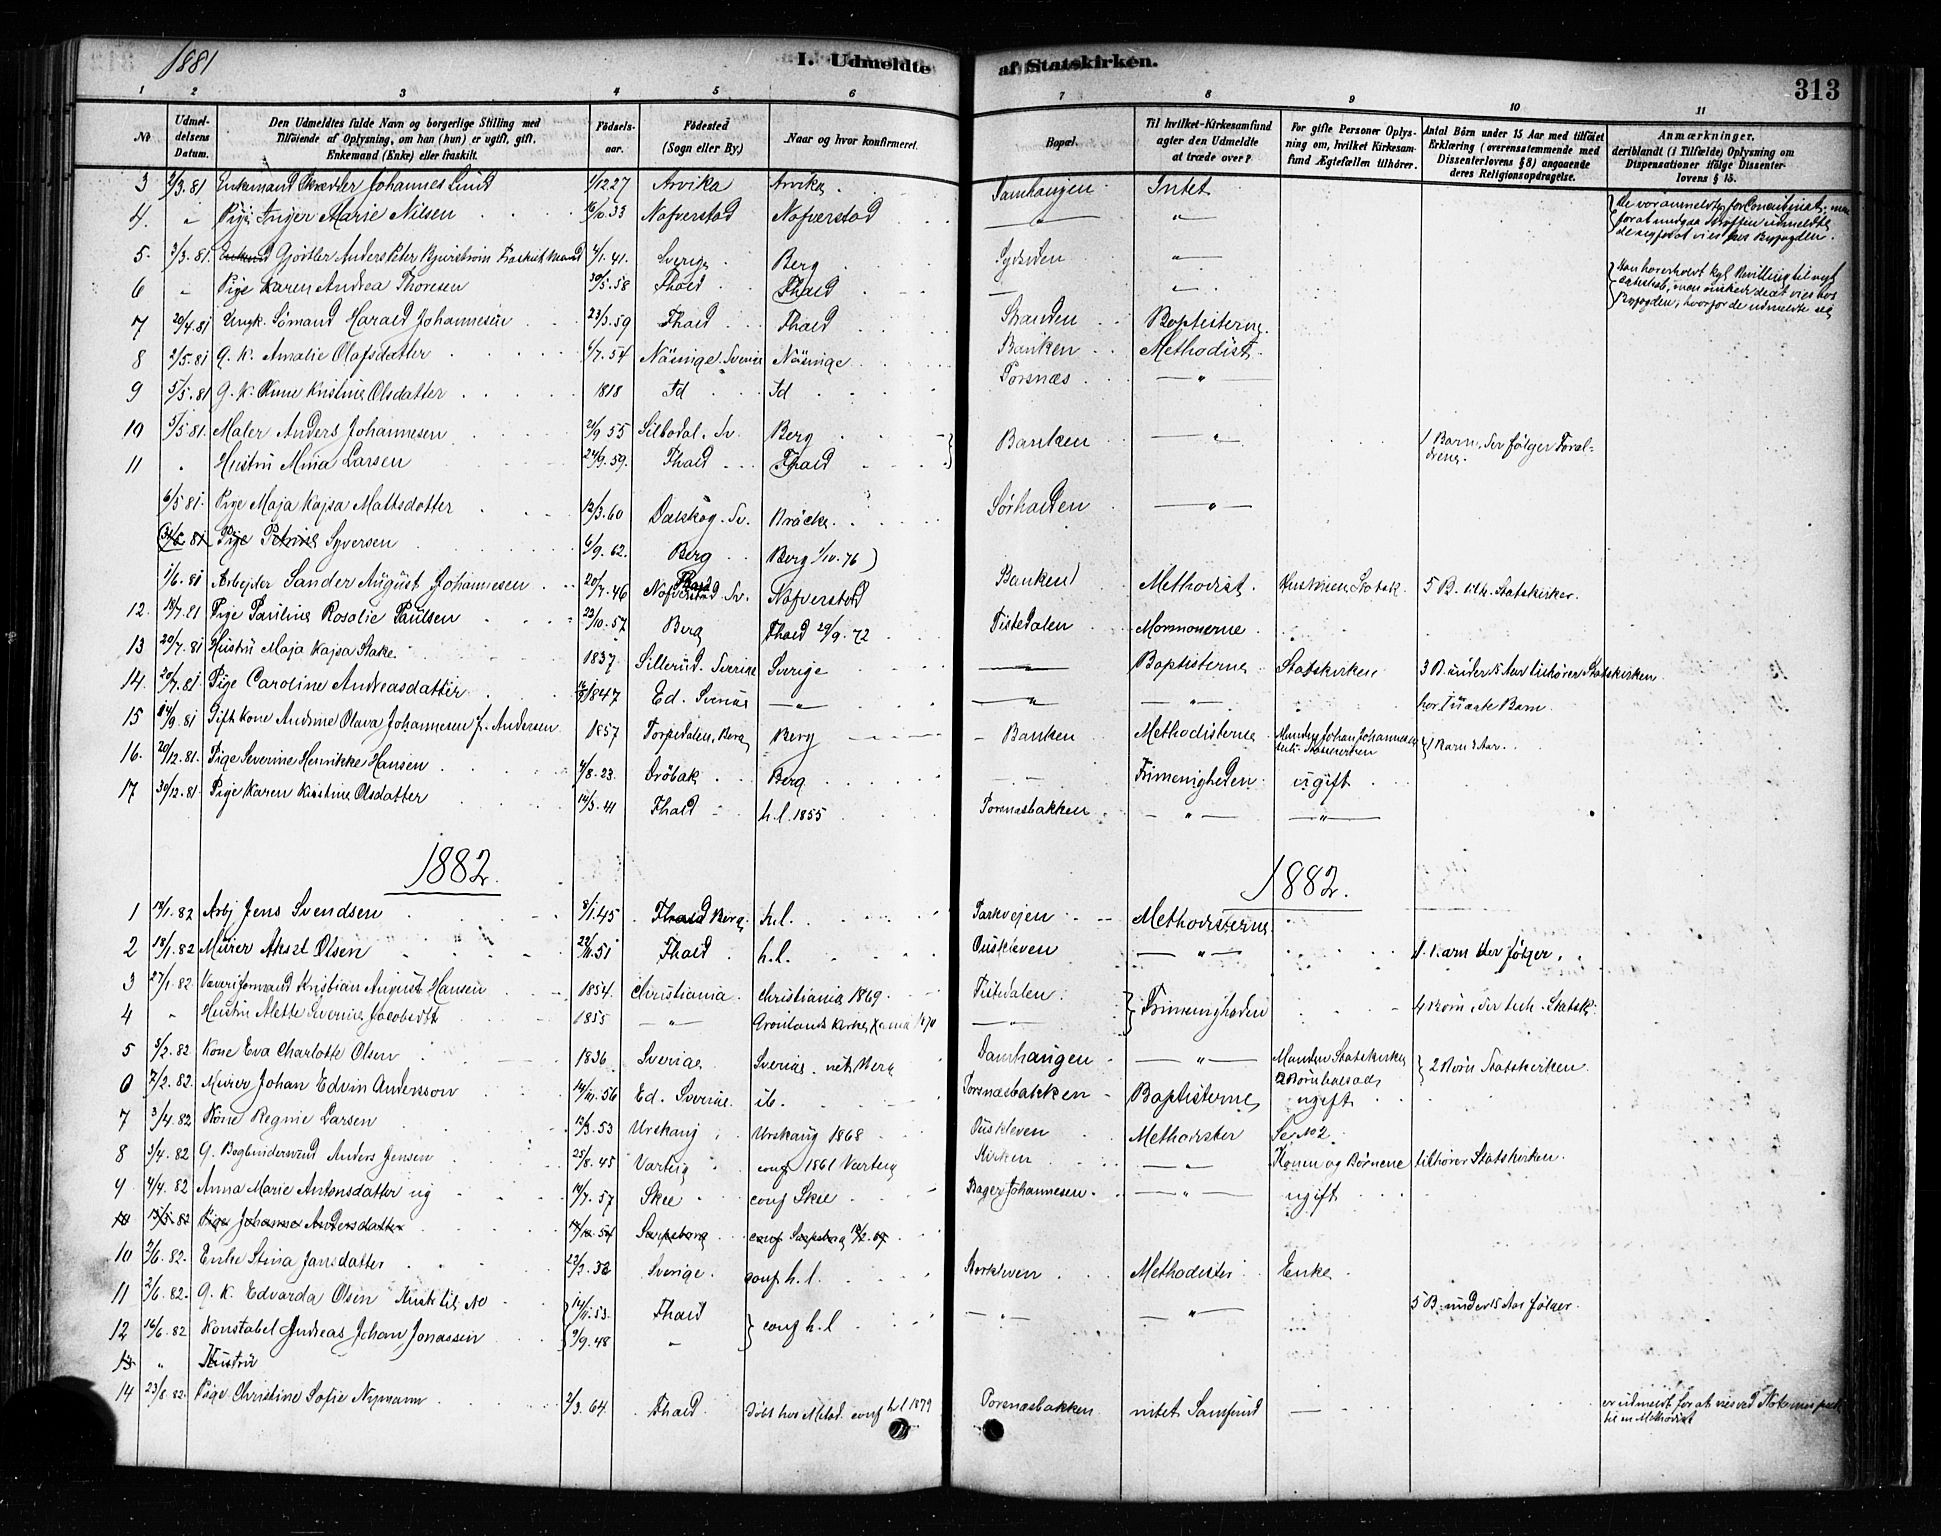 1881
I. Udmeldte af Statskirken.
313
1 2 3 4 5 6 7 8 9 10 11
No
Udmel-
delsens
Datum.
Den Udmeldtes fulde Navn og borgerlige Stilling med
Tilføiende af Oplysning, om han (hun) er ugift, gift,
Enkemand (Enke) eller fraskilt.
Fødsels-
aar.
Fødested
(Sogn eller By.)
Naar og hvor konfirmeret.
Bopæl.
Til hvilket Kirkesamfund
agter den Udmeldte
at træde over?
For gifte Personer Oplys-
ning om, hvilket Kirkesam-
fund Ægtefællen tilhører.
Antal Børn under 15 Aar med tilføiet
Erklæring (overensstemmende med
Dissenterlovens § 8) angaaende
deres Religionsopdragelse.
Anmærkninger,
deriblandt (i Tilfælde) Oplysning om
Dispensationer ifølge Dissenter-
lovens § 15.
3 2/3.81 Enkemand Skrædder Johannes Lund 1/12 27 Arvika Arvika Damhaugen Intet
4. " Pige Inger Marie Nilsen 16/10.33 Nafverstad Nafverstad — " —
5. 3/3.81. Gjørtler Anders Peter Bjurstrøm Fraskilt Mand 4/1.41. Sverige Berg Sydsiden "
6 " Pige Karen Andrea Thoresen 30/5.58 Fhald Fhald — "
7 20/4.81 Ungk. Sømand Harald Johannesen 23/3.59 Fhald Fhald Stranden Baptisterne.
8 2/5.81 G. K. Amalie Olafsdatter 6/7.54 Näsinge Sverige Näsinge Banken Methodist.
9 5/5.81 G. K. Anne Kristine Olsdatter 1818 Id Id Torsnæs — " —
10 5/5 81. Maler Anders Johannesen 21/9 55 Silbodal. Sv. Berg Banken — " — 1 Barn, der følger Foræl-
drene.
11 " Hustru Mina Larsen 24/9.59. Fhald Fhald
6/5 81. Pige Maja Kajsa Mattsdatter 12/3.60 Dalskog. Sv. Bräcke Sørhalden — " —
Pige Petrine Syversen 6/9.62. Berg Berg 1/10.76)
1/6.81 Arbejder Sander August Johannesen 20/7.46 Nafverstad Sv. Nafverstad Banken Methodist. Hustruen Statsk. 5 B. tilh. Statskirken.
12. 18/7.81 Pige Pauline Rosalie Paulsen 22/10.57 Berg Fhald 29/9.72 Tistedalen Mormonerne
13 20/7.81 Hustru Maja Kajsa Stake 1837 Sillerud. Sverige Sverige — Baptisterne Statskirken 3 B. under 15 Aar tilhører Statskirken
14. 20/7.81 Pige Caroline Andreasdatter 1847 Ed. Sverige — " — — " — — " — har I uægte Barn
15 14/9.81 Gift Kone Andrine Olava Johannesen f. Andersen 1857 Torpedalen, Berg Berg Banken Methodisterne Manden Johan Johannesen
16. 20/12.81. Pige Severine Henrikke Hansen 4/8.23. Drøbak Berg Frimenigheden ugift
17 30/12.81. Pige Karen Kirstine Olsdatter 14/3.41 Fhald h.l. 1855 Torsnæsbakken — " — — " —
1882. 1882.
1 14/1.82 Arbj Jens Svendsen 3/1.45 Fhald Berg h.l. Parkvejen Methodisterne
2 18/1.82 Murer Aksel Olsen 22/11.51 Fhald h.l. Ouskleven — " — 1 Barn der følger.
3 27/1.82 Væveriformand Kristian August Hansen 1854. Christiania Christiania 1869. Tistedalen. Frimenigheden 4 Børn, der tilh. Statsk.
4 " Hustru Mette Severine Jacobsdt 1855 — " — Grønlands Kirke, Xania 1870 — " —
5 3/2.82 Kone Eva Charlotte Olsen 1836 Sverige Sverige. Damhaugen — " — Manden Statskirken 2 Børn Statskirken
6 7/2.82. Murer Johan Edvin Andersson 14/11.56 Ed. Sverige ib. Torsnæsbakken Baptisterne ugift
7 3/4.82 Kone Regine Larsen 12/3.53 Urskoug Urskoug 1868 Ouskleven Methodister Se No 2.
8 3/4.82 G. Bogbindersvend Anders Jensen 25/8.45 Varteig conf 1861 Varteig Kirken — " — Konen og Børnene tilhører Statskirken.
9 4/4.82 Anna Marie Antonsdatter ug 14/7.57 Skee conf Skee Bager Johannesen. — " — ugift
10 13/5 82 Pige Johanne Andersdatter Sarpsborg conf Sarpsborg
10 2/6.82. Enke Stina Jansdatter 22/3.32 Sverige. conf h.l. Borkleven Methodister Enke
11 2/6.82. G. K. Edvarda Olsen 14/11.53. Fhald — " — — " — 5 B. under 15 Aar følger.
12 16/6.82 Konstabel Andreas Johan Jonassen 9/9.48 " conf h.l.
13 " Hustru
14 23/8.82. Pige Christine Sofie Nymann 2/3.64. Fhald Døbt hos Metod. conf h l 1879 Torsnæsbakken intet Samfund — er udmeldt for at vies ved Notarius publ.
til en Methodist